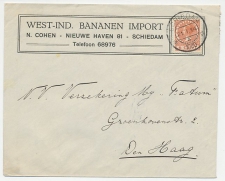 WEST-IND. BANANEN IMPORT
N. COHEN - NIEUWE HAVEN 81 - SCHIEDAM
Telefoon 68976
N.V. Verzekering Mij - Fatum
Groenhovenstr. 2
Den Haag